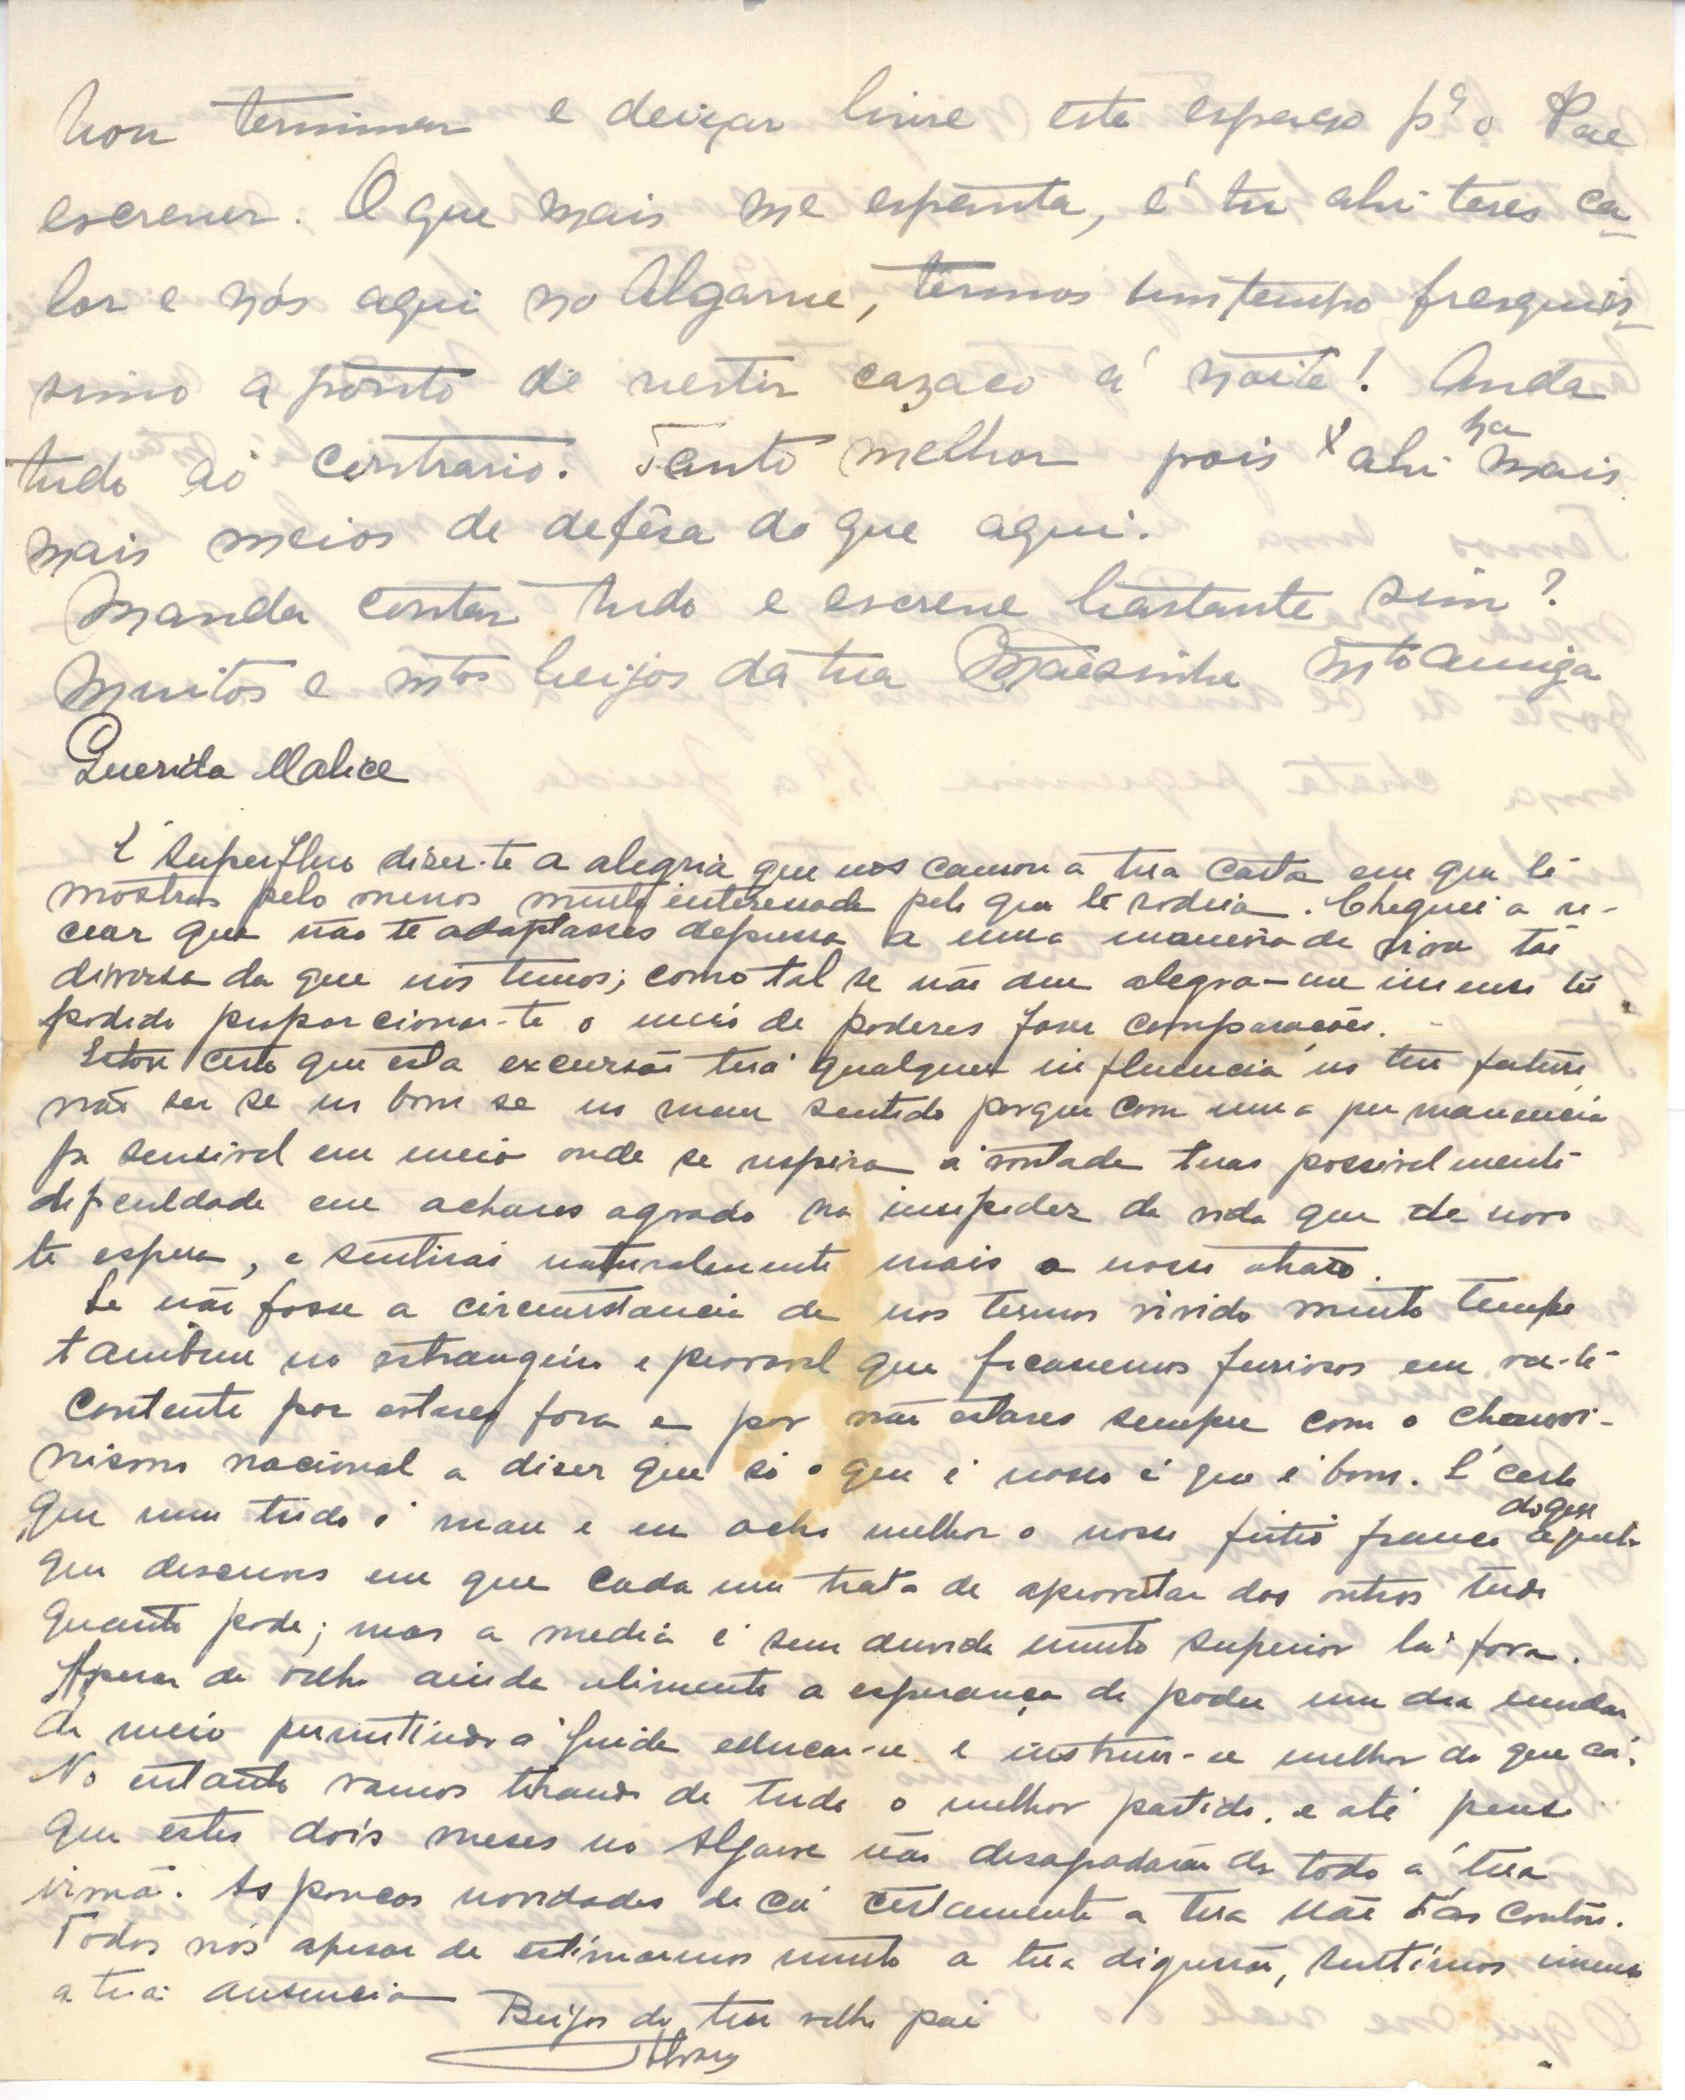 Vou terminar e deixar livre este espaço pª o Pae
escrever. O que mais me espanta, é tu ahi teres ca-
lor e nós aqui no Algarve, termos um tempo fresquis-
simo a ponto de vestir cazaco á noite! Anda
tudo ao contrario. Tanto melhor pois ahi ha mais
mais meios de defêsa do que aqui.
Manda contar tudo e escreve bastante sim?
Muitos e mtos beijos da tua Mãesinha mto amiga
Querida
É superfluo dizer-te a alegria que nos causou a tua carta em que te
mostras pelo menos muito interessada pelo que te rodeia. Cheguei a re-
cear que não te adaptasses depressa a uma maneira de viver tão
diversa da que nós temos; como tal se não deu alegra-me imenso ter
podido proporcionar-te o meio de poderes fazer comparações.
Estou certo que esta excursão terá qualquer influencia no teu futuro
não sei se no bom se no mau sentido porque com uma permanencia
já sensivel em meio onde se respira á vontade teras possivelmente
dificuldade em achares agrado na insipidez da vida que de novo
te espera, e sentirás naturalmente mais o nosso atrazo.
Se não fosse a circumstancia de nos termos vivido muito tempo
tambem no estrangeiro e provavel que ficassemos furiosos em ver-te
contente por estares fora e por não estares sempre com o chauvi-
nismo nacional a dizer que só o que é nosso é que é bom. É certo
que nem tudo é mau e eu acho melhor o nosso feitio franco do que
que descreves em que cada um trata de aproveitar dos outros tudo
quanto pode; mas a media é sem duvida muito superior lá fora.
Apesar de velho ainda alimento a esperança de poder um dia mudar
de meio permitindo á Guida educar-se e instruir-se melhor do que cá.
No entanto vamos tirando de tudo o melhor partido. e até penso
que estes dois meses no Algarve não desagradarão de todo a tua
irmã. As poucas novidades de cá certamente a tua Mãe t'as contou.
Todos nós apesar de estimarmos muito a tua digressão, sentimos imenso
a tua ausencia
Beijos do teu velho pai